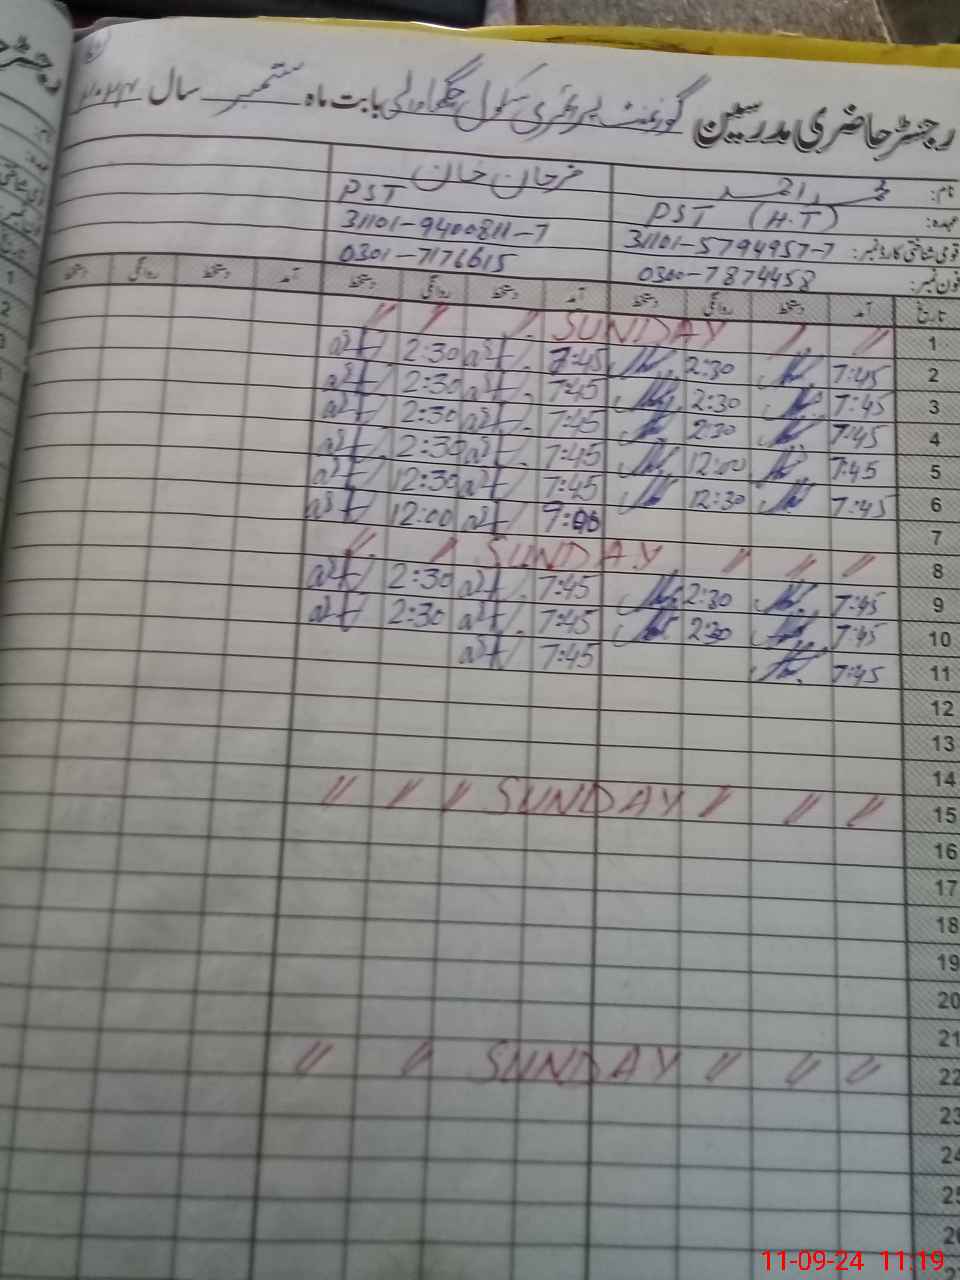 رجسٹر حاضری مدرسین گورنمنٹ پرائمری سکول بابت ماہ ستمبر سال ۲۰۲۴
نام: فرحان خان
عہدہ: PST (H.T) PST
قومی شناختی کارڈ نمبر: 31101-5794957-7 31101-9400811-7
فون نمبر: 0300-7874458 0301-7176615
تاریخ آمد دستخط روانگی دستخط آمد دستخط روانگی دستخط آمد دستخط روانگی دستخط
1 〃 〃 SUNDAY 〃 〃 〃
2 7:45 2:30 7:45 2:30
3 7:45 2:30 7:45 2:30
4 7:45 2:30 7:45 2:30
5 7:45 12:00 7:45 2:30
6 7:45 12:30 7:45 12:30
7 9:00 12:00
8 〃 〃 〃 SUNDAY 〃 〃
9 7:45 2:30 7:45 2:30
10 7:45 2:30 7:45 2:30
11 7:45 7:45
12
13
14
15 〃 〃 〃 SUNDAY 〃 〃 〃
16
17
18
19
20
21
22 〃 〃 〃 SUNDAY 〃 〃
23
24
25
26
11-09-24 11:19